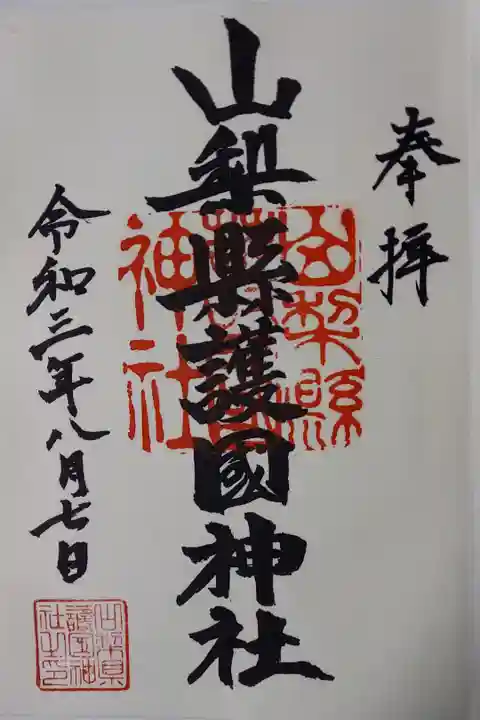 奉拝
山梨縣護國神社
山梨縣護國神社
令和三年八月七日
山梨県護国神社之印